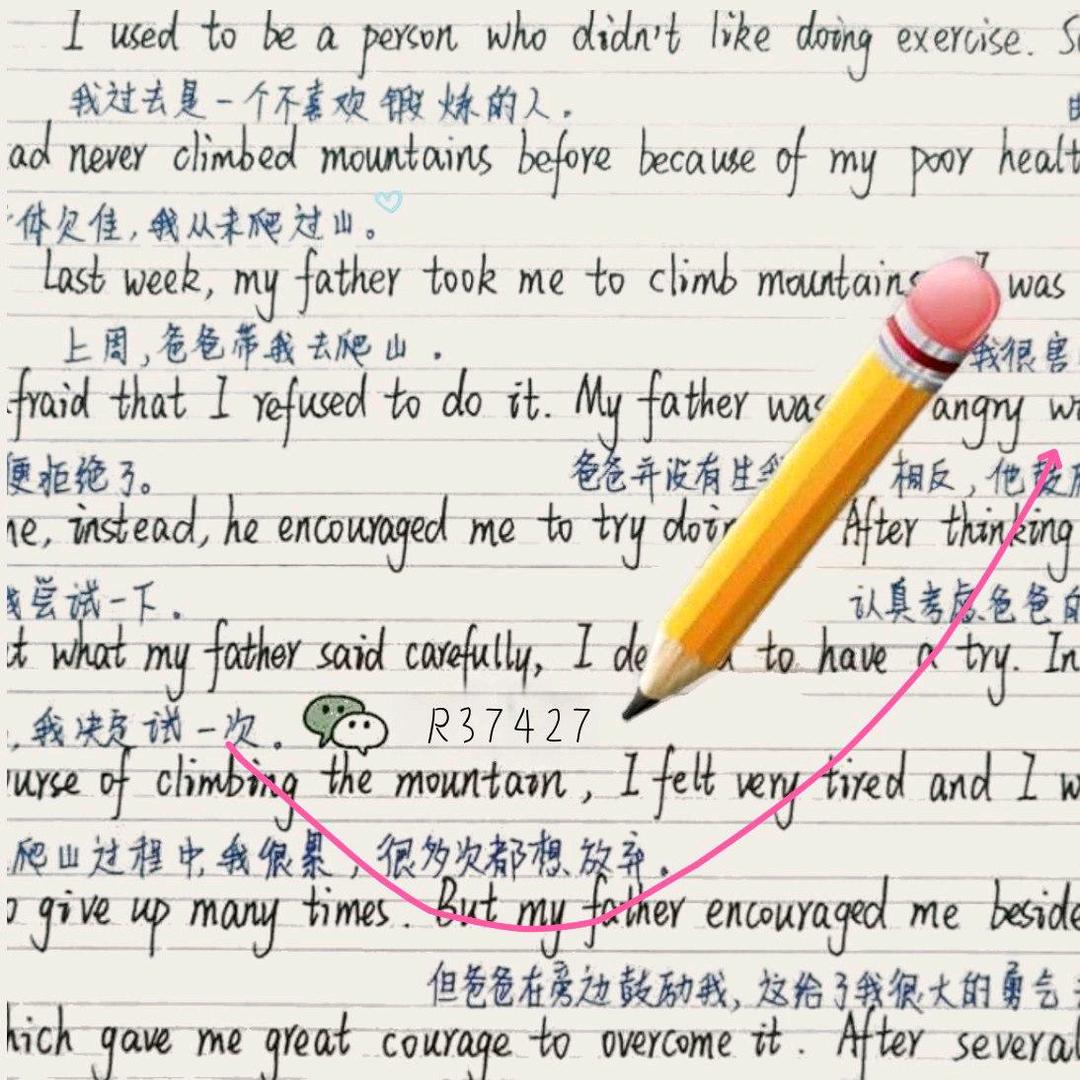 I used to be a person who didn't like doing exercise.
我过去是一个不喜欢锻炼的人.
ad never climbed mountains before because of my poor healt
体欠佳,我从未爬过山。
Last week, my father took me to climb mountains I was
上周,爸爸带我去爬山.
我很害
fraid that I refused to do it. My father was angry w
便拒绝了。 爸爸并没有生 相反,他鼓
ne, instead, he encouraged me to try doin After thinking
我尝试一下. 认真考虑爸爸的
t what my father said carefully, I de to have a try. In
,我决定试一次. R37427
urse of climbing the mountain, I felt very tired and I w
爬山过程中,我很累,很多次都想放弃.
o give up many times. But my father encouraged me beside
但爸爸在旁边鼓励我,这给了我很大的勇气
hich gave me great courage to overcome it. After several